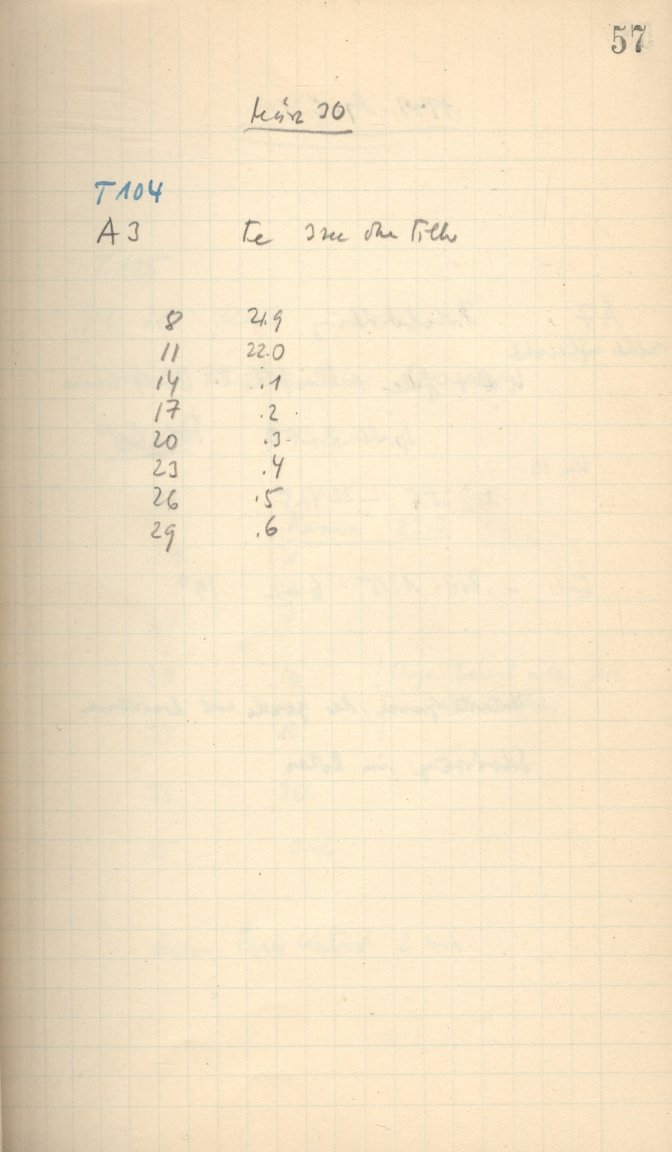 57
März 30
T104
A3 Te
8 21.9
11 22.0
14 .1
17 .2
20 .3
23 .4
26 .5
29 .6